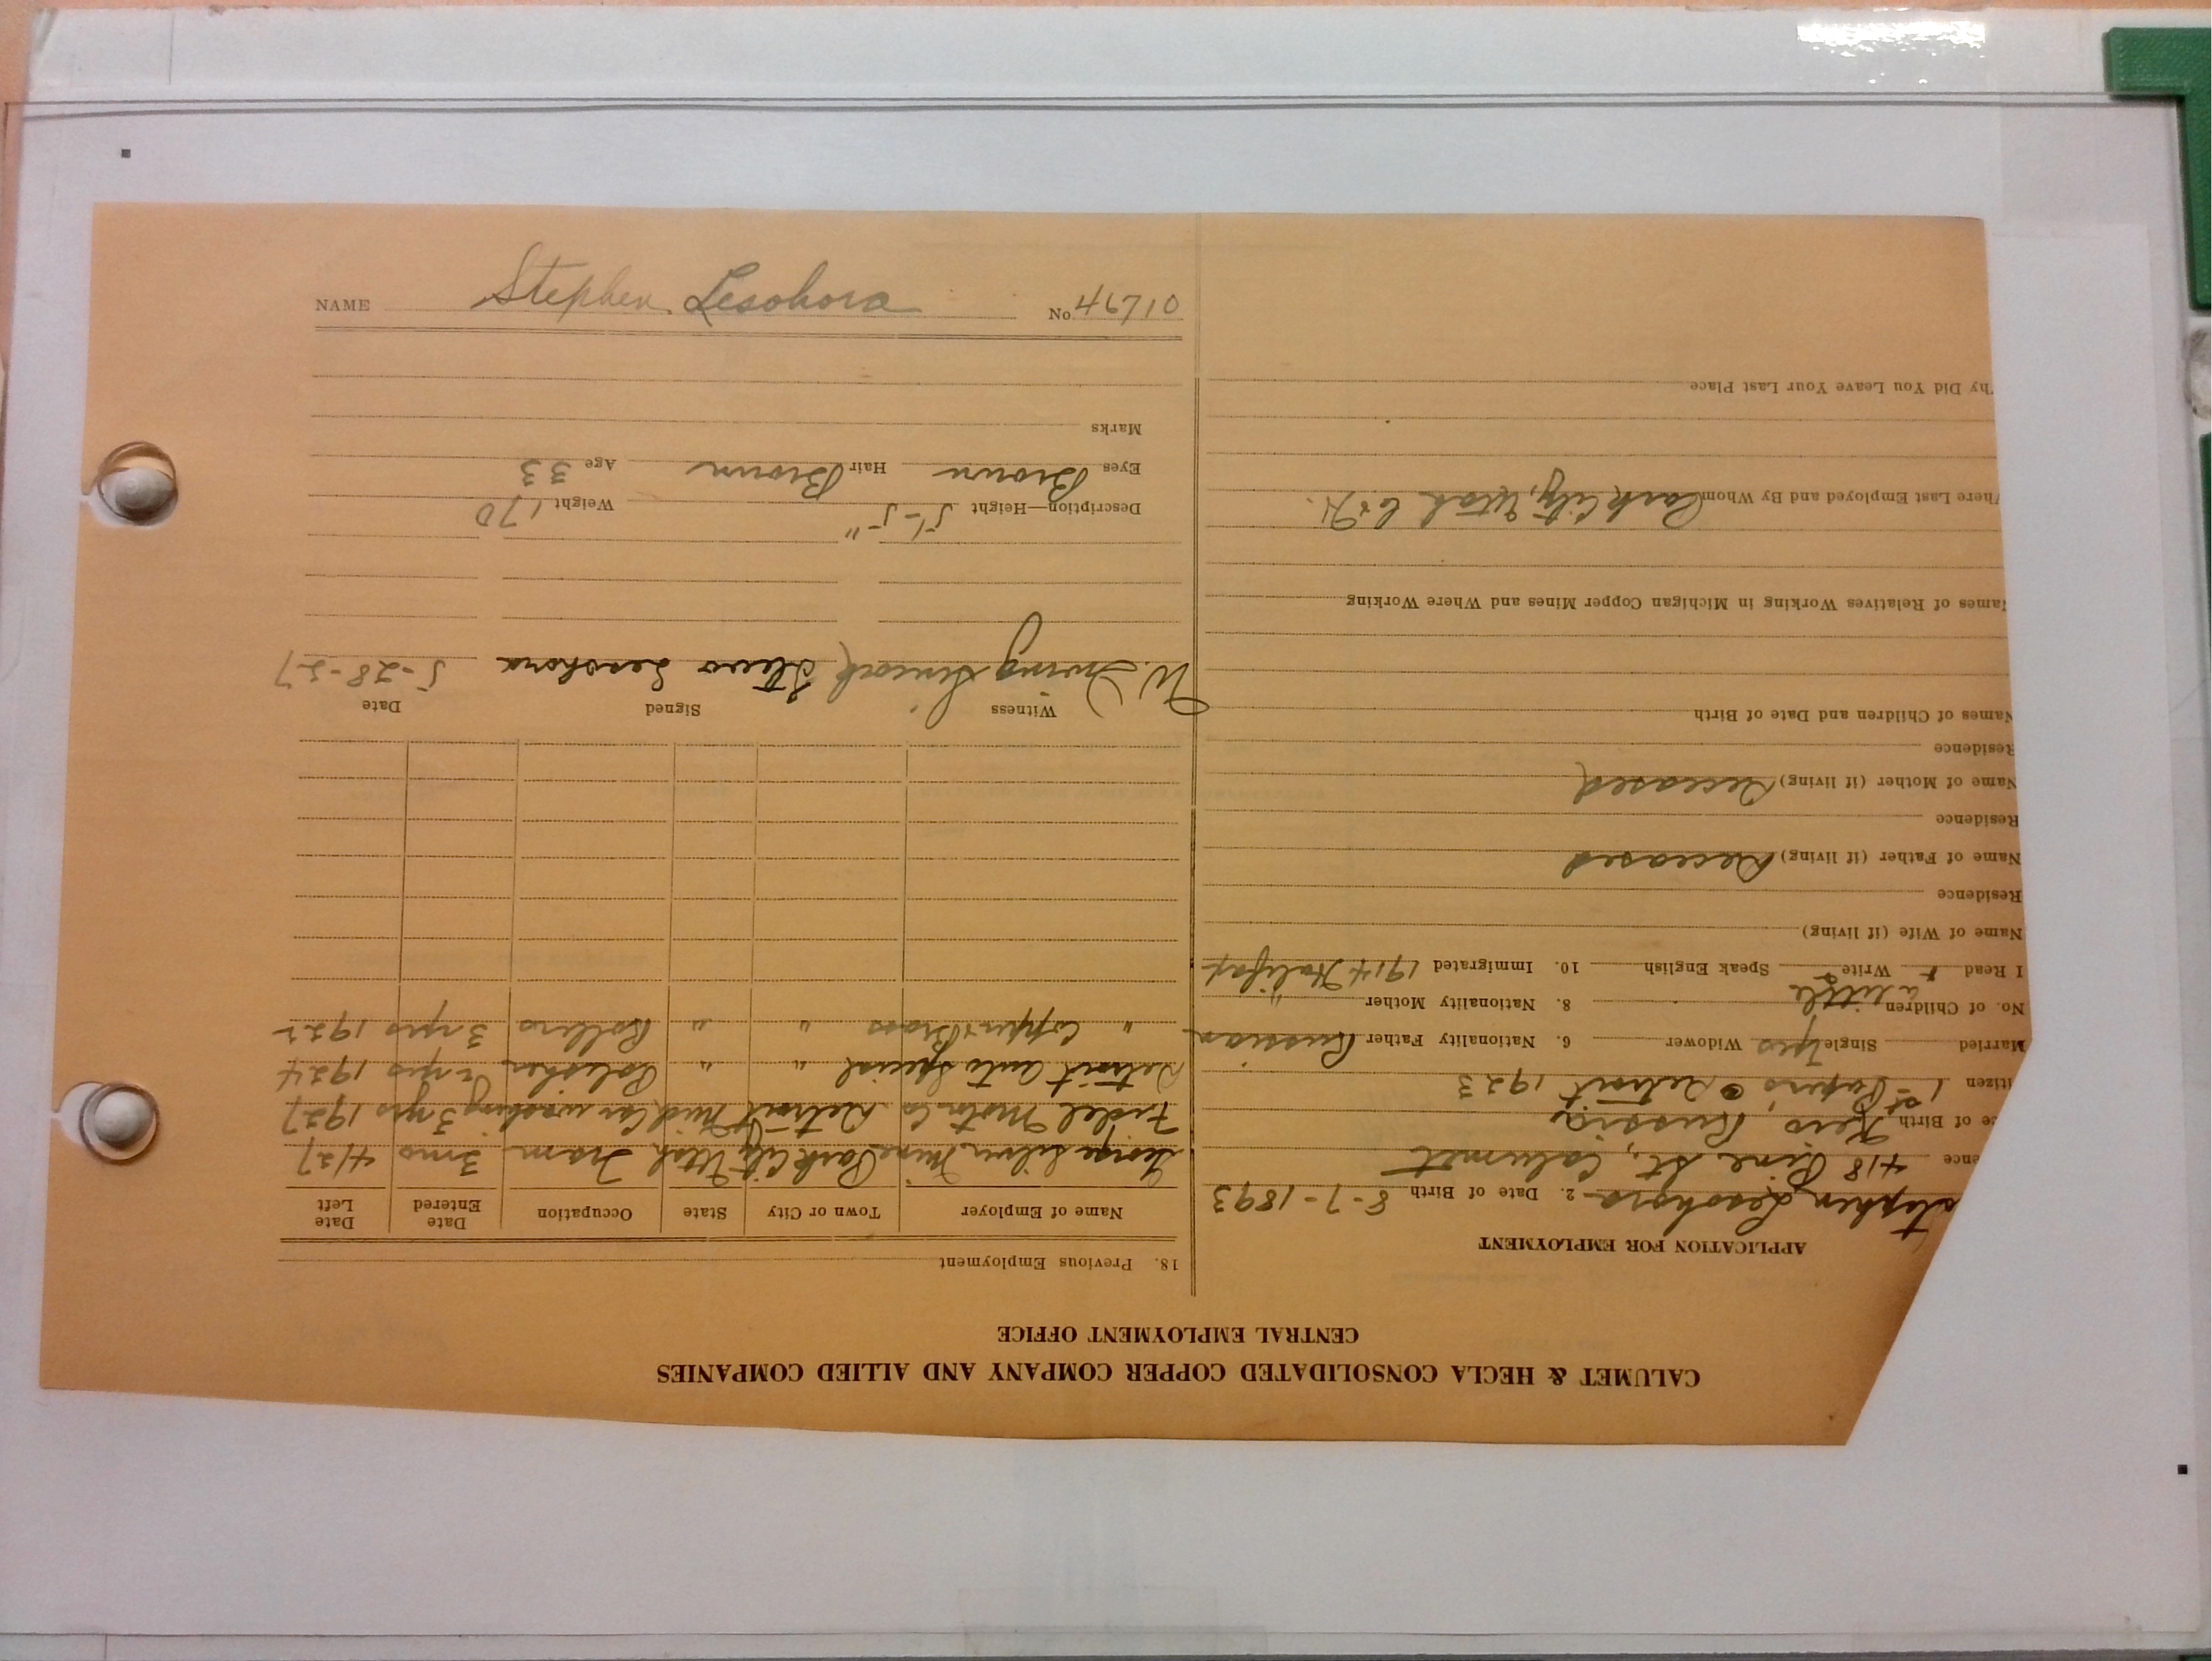 NAME Stephen Lesohora No. 46710
CALUMET & HECLA CONSOLIDATED COPPER COMPANY AND ALLIED COMPANIES
CENTRAL EMPLOYMENT OFFICE
APPLICATION FOR EMPLOYMENT
Stephen Lesohora 2. Date of Birth 8-7-1893
ence 418 Pine St., Calumet
ce of Birth Russia
itizen 1st Papers, Detroit 1923
Married Single yes Widower 6. Nationality Father Russian
No. of Children 8. Nationality Mother "
a little
I Read + Write Speak English 10. Immigrated 1914 Halifax
Name of Wife (if living)
Residence
Name of Father (if living) Deceased
Residence
Name of Mother (if living) Deceased
Residence
Names of Children and Date of Birth
ames of Relatives Working in Michigan Copper Mines and Where Working
here Last Employed and By Whom Park City, Utah
hy Did You Leave Your Last Place
18. Previous Employment
Name of Employer Town or City State Occupation Date Entered Date Left
George Silver Mine Park City Utah Tram 3 mo 4/27
Motor Co Detroit Mich Car washing 3 yrs 1927
Detroit Auto Special " " Polisher 2 yrs 1924
" Copper & Brass " " Rollers 3 yrs 1922
Witness Signed Date
W. Irving Stevo Lesohora 5-28-27
Description—Height 5'-5" Weight 170
Eyes Brown Hair Brown Age 33
Marks